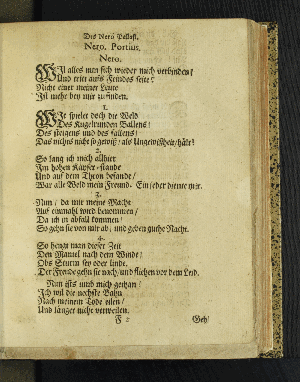 Des Nero Pallast.
Nero, Portius,
Nero.
Wil alles man sich wieder mich verbinden/
Und tritt auffs Feindes seite?
Nicht einer meiner Leute
Ist mehr bey mir zu finden.
1.
Wie spielet doch die Welt
Des Kugelrunden Ballens/
Des steigens und des fallens/
Das nichts nicht so gewiß/ als Ungewißheit/ hält!
2.
So lang ich mich allhier
Im hohen Käyser-stande
Und auf dem Thron befande/
War alle Welt mein Freund. Ein jeder dienete mir.
3.
Nun/ da mir meine Macht
Auf einmahl wird benommen/
Da ich in abfall kommen/
So gehn sie von mir ab/ und geben gute Nacht.
4.
So hengt man dieser Zeit
Den Mantel nach dem Winde/
Obs Sturm sey oder linde.
Der Freude gehn sie nach/ und fliehen vor dem Leid.
Nun ists und mich gethan/
Ich wil die nechste Bahn
Nach meinem Tode eilen/
Und länger nicht verweilen.
F 2 Geh/